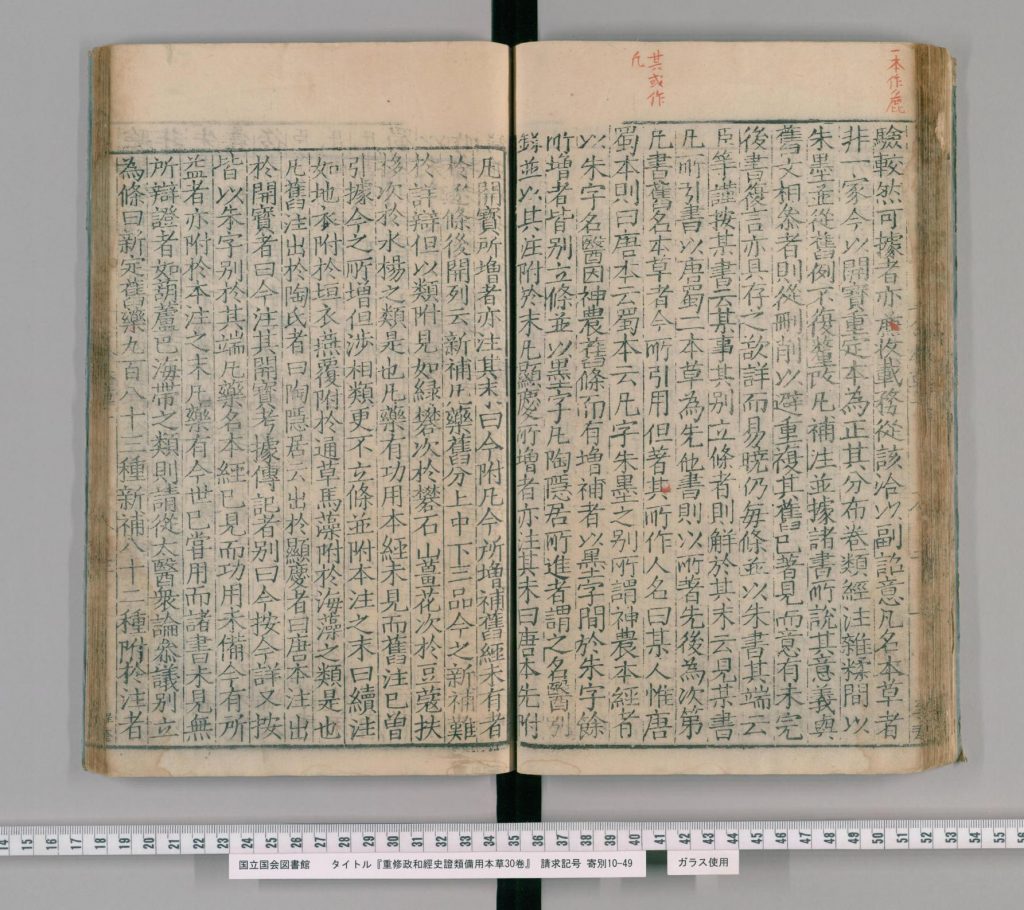 一本作鹿
其或作
凡
驗較然可據者亦載務從該洽以副詔意凡名本草者
非一家今以開寶重定本為正其分布卷類經注雜糅間以
朱墨並從舊例不復釐改凡補注並據諸書所說其意義與
舊文相參者則從刪削以避重複其舊已著見而意有未完
後書復言亦具存之欲詳而易曉仍每條並以朱書其端云
臣等謹按某書云某事其別立條者則解於其末云見某書
凡所引書以唐蜀二本草為先他書則以所著先後為次第
凡書舊名本草者今所引用但著其所作人名曰某人惟唐
蜀本則曰唐本云蜀本云凡字朱墨之別所謂神農本經者
以朱字名醫因神農舊條而有增補者以墨字間於朱字餘
所增者皆別立條並以墨字凡陶隱居所進者謂之名醫別
錄並以其注附於末凡顯慶所增者亦注其末曰唐本先附
凡開寶所增者亦注其末曰今附凡今所增補舊經未有者
於逐條後開列云新補凡藥舊分上中下三品今之新補難
於詳辯但以類附見如綠礬次於礬石山薑花次於豆蔻扶
栘次於水楊之類是也凡藥有功用本經未見而舊注已曾
引據今之所增但涉相類更不立條並附本注之末曰續注
如地衣附於垣衣燕覆附於通草馬藻附於海藻之類是也
凡舊注出於陶氏者曰陶隱居云出於顯慶者曰唐本注出
於開寶者曰今注其開寶考據傳記者別曰今按今詳又按
皆以朱字別於其端凡藥名本經已見而功用未備今有所
益者亦附於本注之末凡藥有今世已嘗用而諸書未見無
所辯證者如葫蘆巴海帶之類則請從太醫衆論參議別立
為條曰新定舊藥九百八十三種新補八十二種附於注者
14 15 16 17 18 19 20 21 22 23 24 25 26 27 28 29 30 31 32 33 34 35 36 37 38 39 40 41 42 43 44 45 46 47 48 49 50 51 52 53 54 55 56
国立国会図書館 タイトル『重修政和經史證類備用本草30巻』 請求記号 寄別10-49
ガラス使用